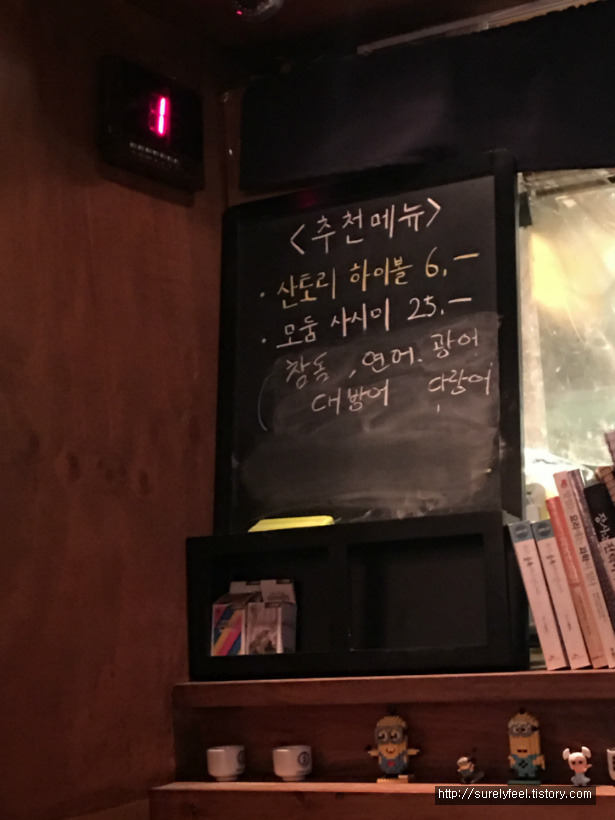 1
<추천메뉴>
· 산토리 하이볼 6.-
· 모둠 사시미 25.-
참돔, 연어. 광어
대방어 다랑어
http://surelyfeel.tistory.com